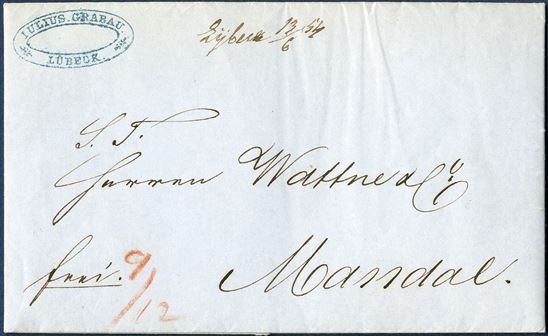 JULIUS. GRABAU
LÜBECK.
Lÿbeck 13/6 54
S. T.
Herren Wattne & Co
frei. 9/12
Mandal.